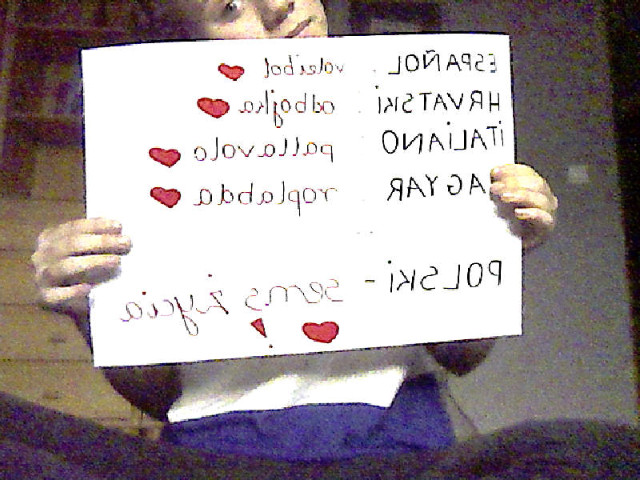 ESPAÑOL : voleibol ♥
HRVATSKI : odbojka ♥
ITALIANO : pallavolo ♥
AGYAR : roplabda ♥
POLSKI - sens życia
♥ !